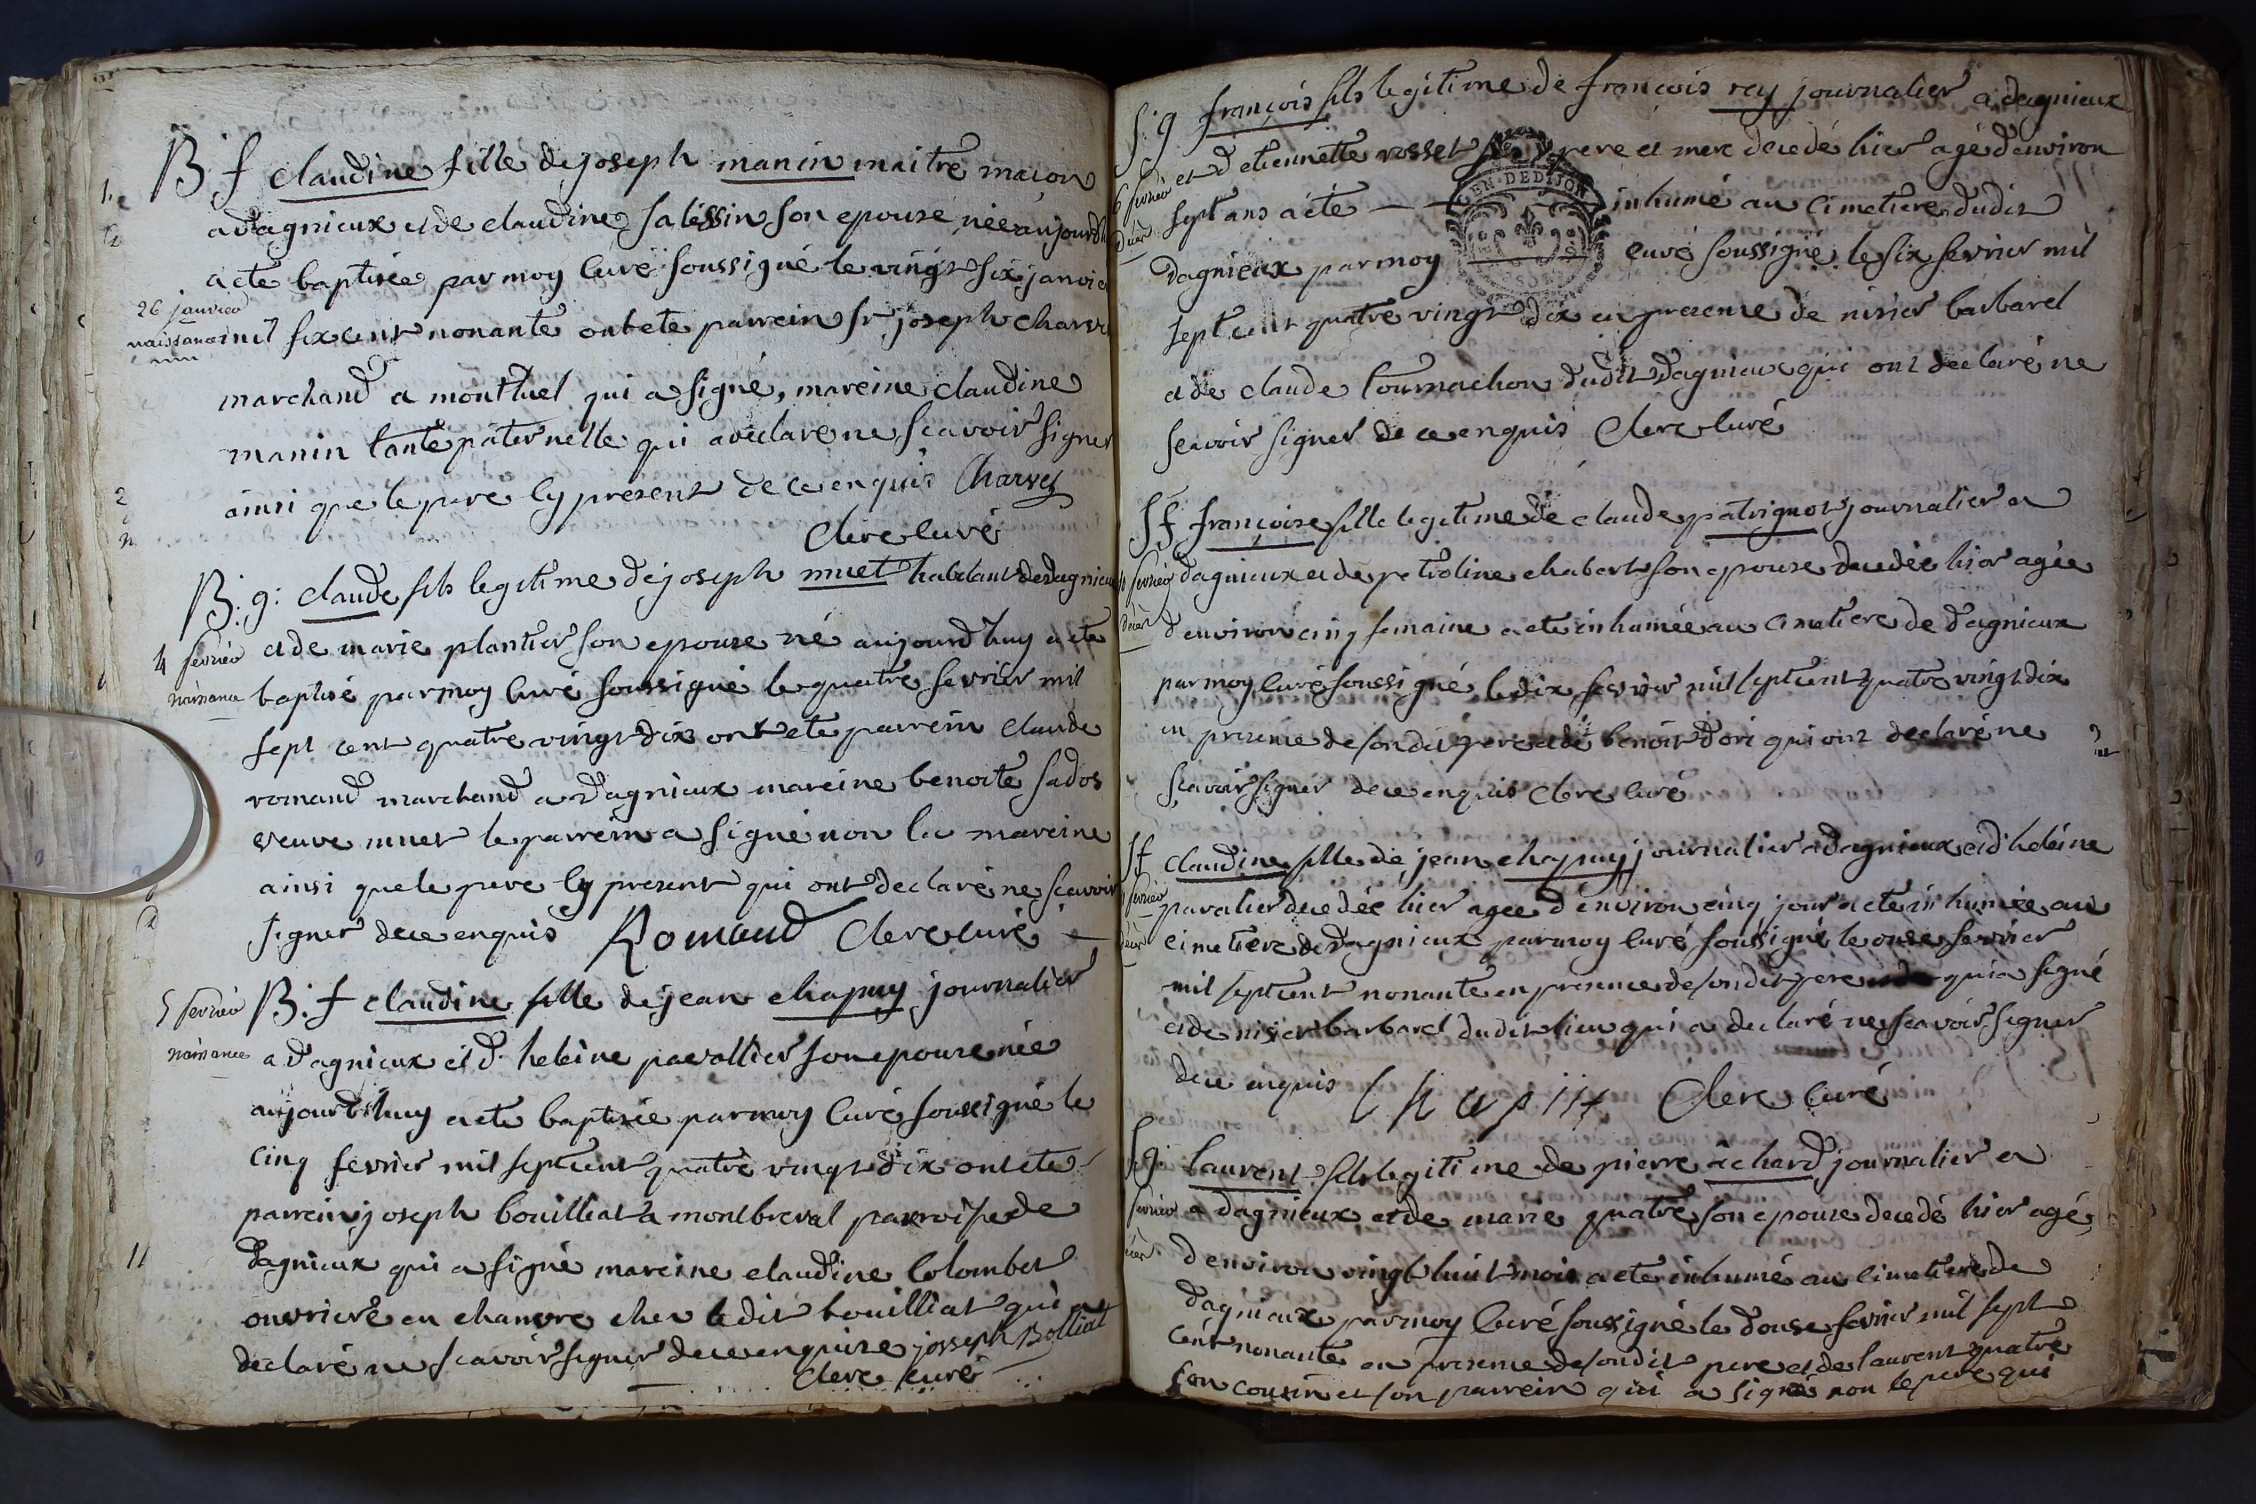 B. f claudine fille de joseph manin maitre maçon
a dagnieux et de claudine salessin son epouse née aujourd'h
a eté baptisée par moy curé soussigné le vingt six janvier
26 janvier
naissance
mil six cent nonante ont eté parrein sr joseph charve
marchand a montluel qui a signé, mareine claudine
manin tante paternelle qui a declaré ne scavoir signer
ainsi que le pere cy present de ce enquis Charvez
Clerc curé
B. g. claude fils legitime de joseph muet habitant de dagnieux
4 fevrier
naissance
et de marie plantier son epouse né aujourd'huy a eté
baptisé par moy curé soussigné le quatre fevrier mil
sept cent quatre vingt dix ont eté parrein claude
romand marchand a dagnieux mareine benoite sados
veuve muet le parrein a signé non la mareine
ainsi que le pere cy present qui ont declaré ne scavoir
signer de ce enquis Romand Clerc curé
5 fevrier
naissance
B. f claudine fille de jean chapuy journalier
a dagnieux et d. heleine pavallier son epouse née
aujourd'huy a eté baptisée par moy curé soussigné le
cinq fevrier mil sept cent quatre vingt dix ont eté
parrein joseph bouilliat a montbreval parroisse de
dagnieux qui a signé mareine claudine Colombet
ouvriere en chanvre chez ledit bouilliat qui a
declaré ne scavoir signer de ce enquise josseph Bolliat
Clerc curé
11
S. g françois fils legitime de françois rey journalier a dagnieux
6 fevrier
décès
et d etiennette rosset pere et mere decedé hier agé d'environ
sept ans a eté inhumé au cimetiere dudit
EN. DEDIJON
dagnieux par moy curé soussigné le six fevrier mil
sept cent quatre vingt dix en presence de nisier barbarel
et de claude tournachon dudit dagnieux qui ont declaré ne
scavoir signer de ce enquis Clerc curé
S f françoise fille legitime de claude patrignot journalier a
fevrier
décès
dagnieux et de petroline chabert son epouse decedée hier agée
d'environ cinq semaine a eté inhumée au cimetiere de dagnieux
par moy curé soussigné le dix fevrier mil sept cent quatre vingt dix
en presence de son dit pere et de benoit dori qui ont declaré ne
scavoir signer de ce enquis Clerc curé
S f claudine fille de jean chapuy journalier a dagnieux et d'heleine
fevrier
décès
pavalier decedée hier agée d'environ cinq jour a eté inhumée au
cimetiere de dagnieux par moy curé soussigné le onze fevrier
mil sept cent nonante en presence de son dit pere qui a signé
et de nisier barbarel dudit lieu qui a declaré ne scavoir signer
de ce enquis Clerc curé
S. g. Laurent fils legitime de pierre achard journalier a
fevrier
décès
a dagnieux et de marie quatre son epouse decedé hier agé
d'environ vingt huit mois a eté inhumé au cimetiere de
dagnieux par moy curé soussigné le douse fevrier mil sept
cent nonante en presence de son dit pere et de laurent quatre
son cousin et son parrein qui a signé non le pere qui